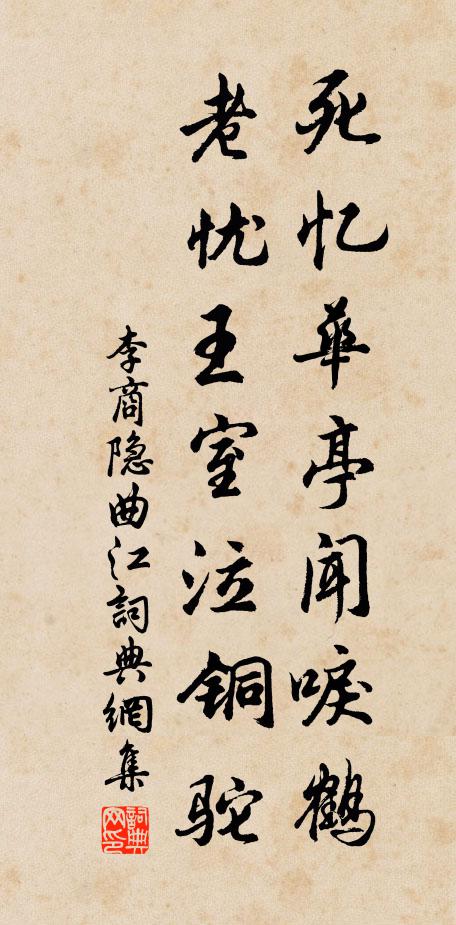 死忆華亭闻唳鹤
老忧王室泣铜驼
李商隐曲江詞典網集
詞典网印